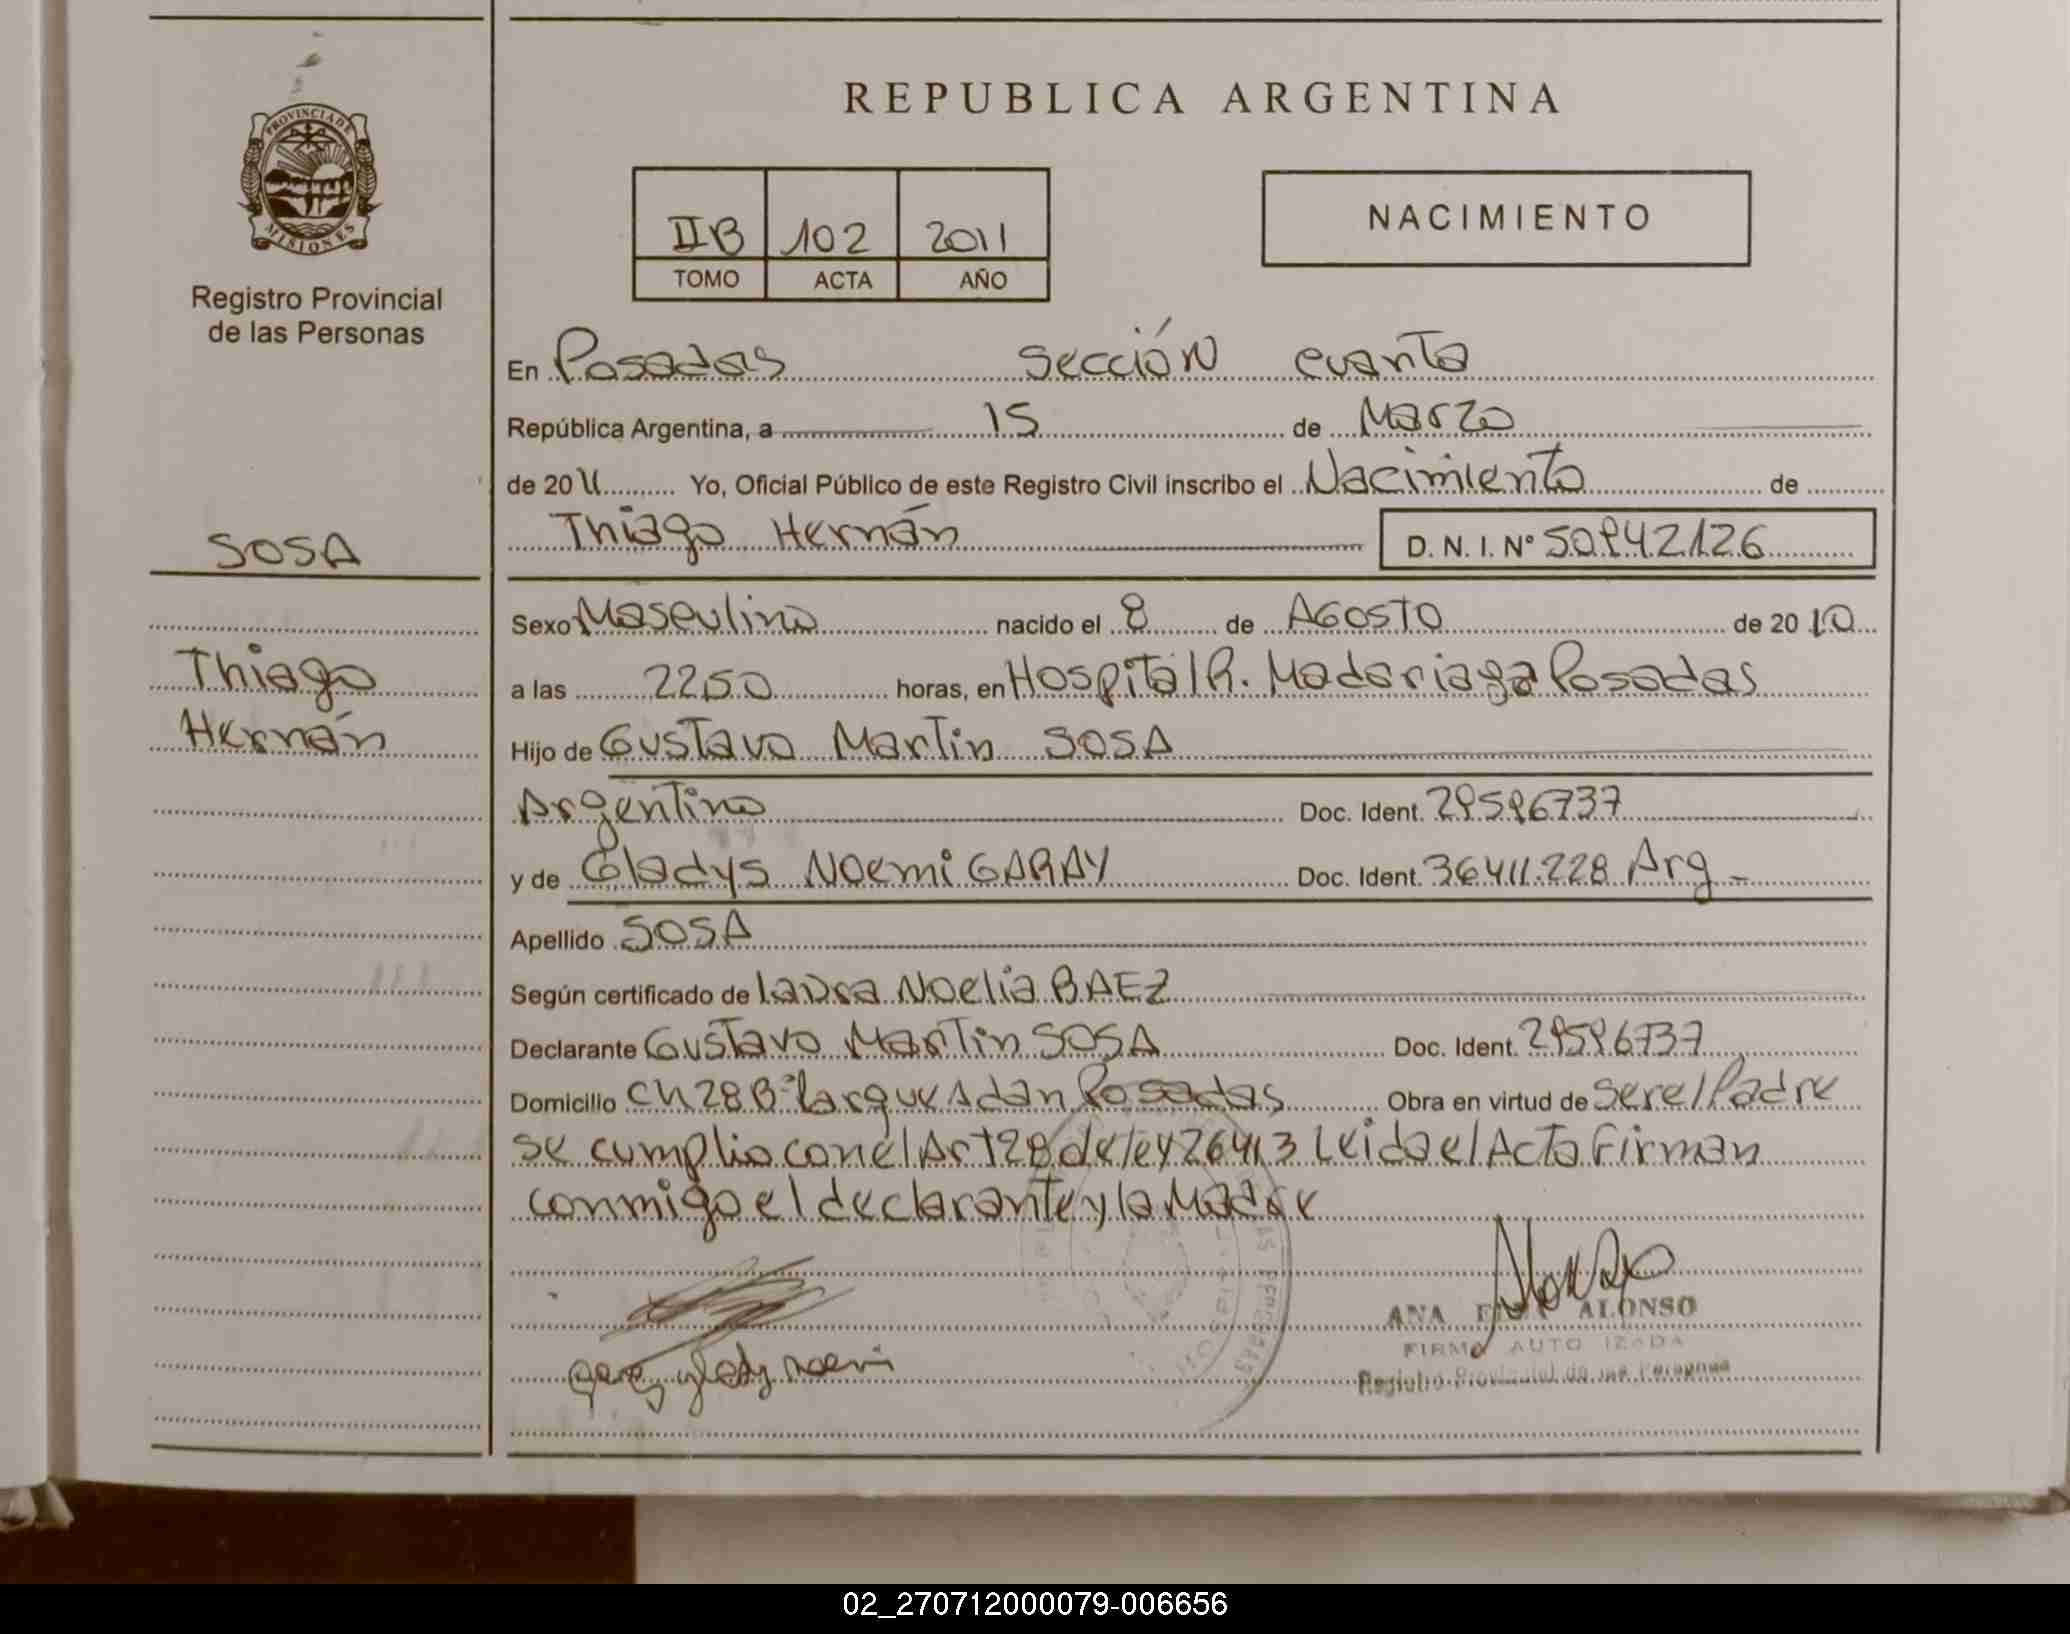 REPUBLICA ARGENTINA
PROVINCIA DE
MISIONES
Registro Provincial
de las Personas
IIB 102 2011
TOMO ACTA AÑO
NACIMIENTO
En Posadas Sección cuarta
República Argentina, a 15 de Marzo
de 2011 Yo, Oficial Público de este Registro Civil inscribo el Nacimiento de
Thiago Hernán D. N. I. Nº
SOSA
Thiago
Hernán
Sexo Masculino nacido el 8 de AGOSTO de 2010
a las 22,50 horas, en Hospital R. Madariaga Posadas
Hijo de Gustavo Martin SOSA
Argentino Doc. Ident.
y de Gladys Noemi GARAY Doc. Ident. 36411.228 Arg
Apellido SOSA
Según certificado de laura Noelia BAEZ
Declarante Gustavo Martin SOSA Doc. Ident.
Domicilio Ch 28 Bº Parque Adan Posadas Obra en virtud de ser el Padre
se cumplio con el Art 28 de ley 26413 Leida el Acta Firman
conmigo el declarante y la Madre
ANA ALONSO
Registro Provincial de las Personas
02_270712000079-006656